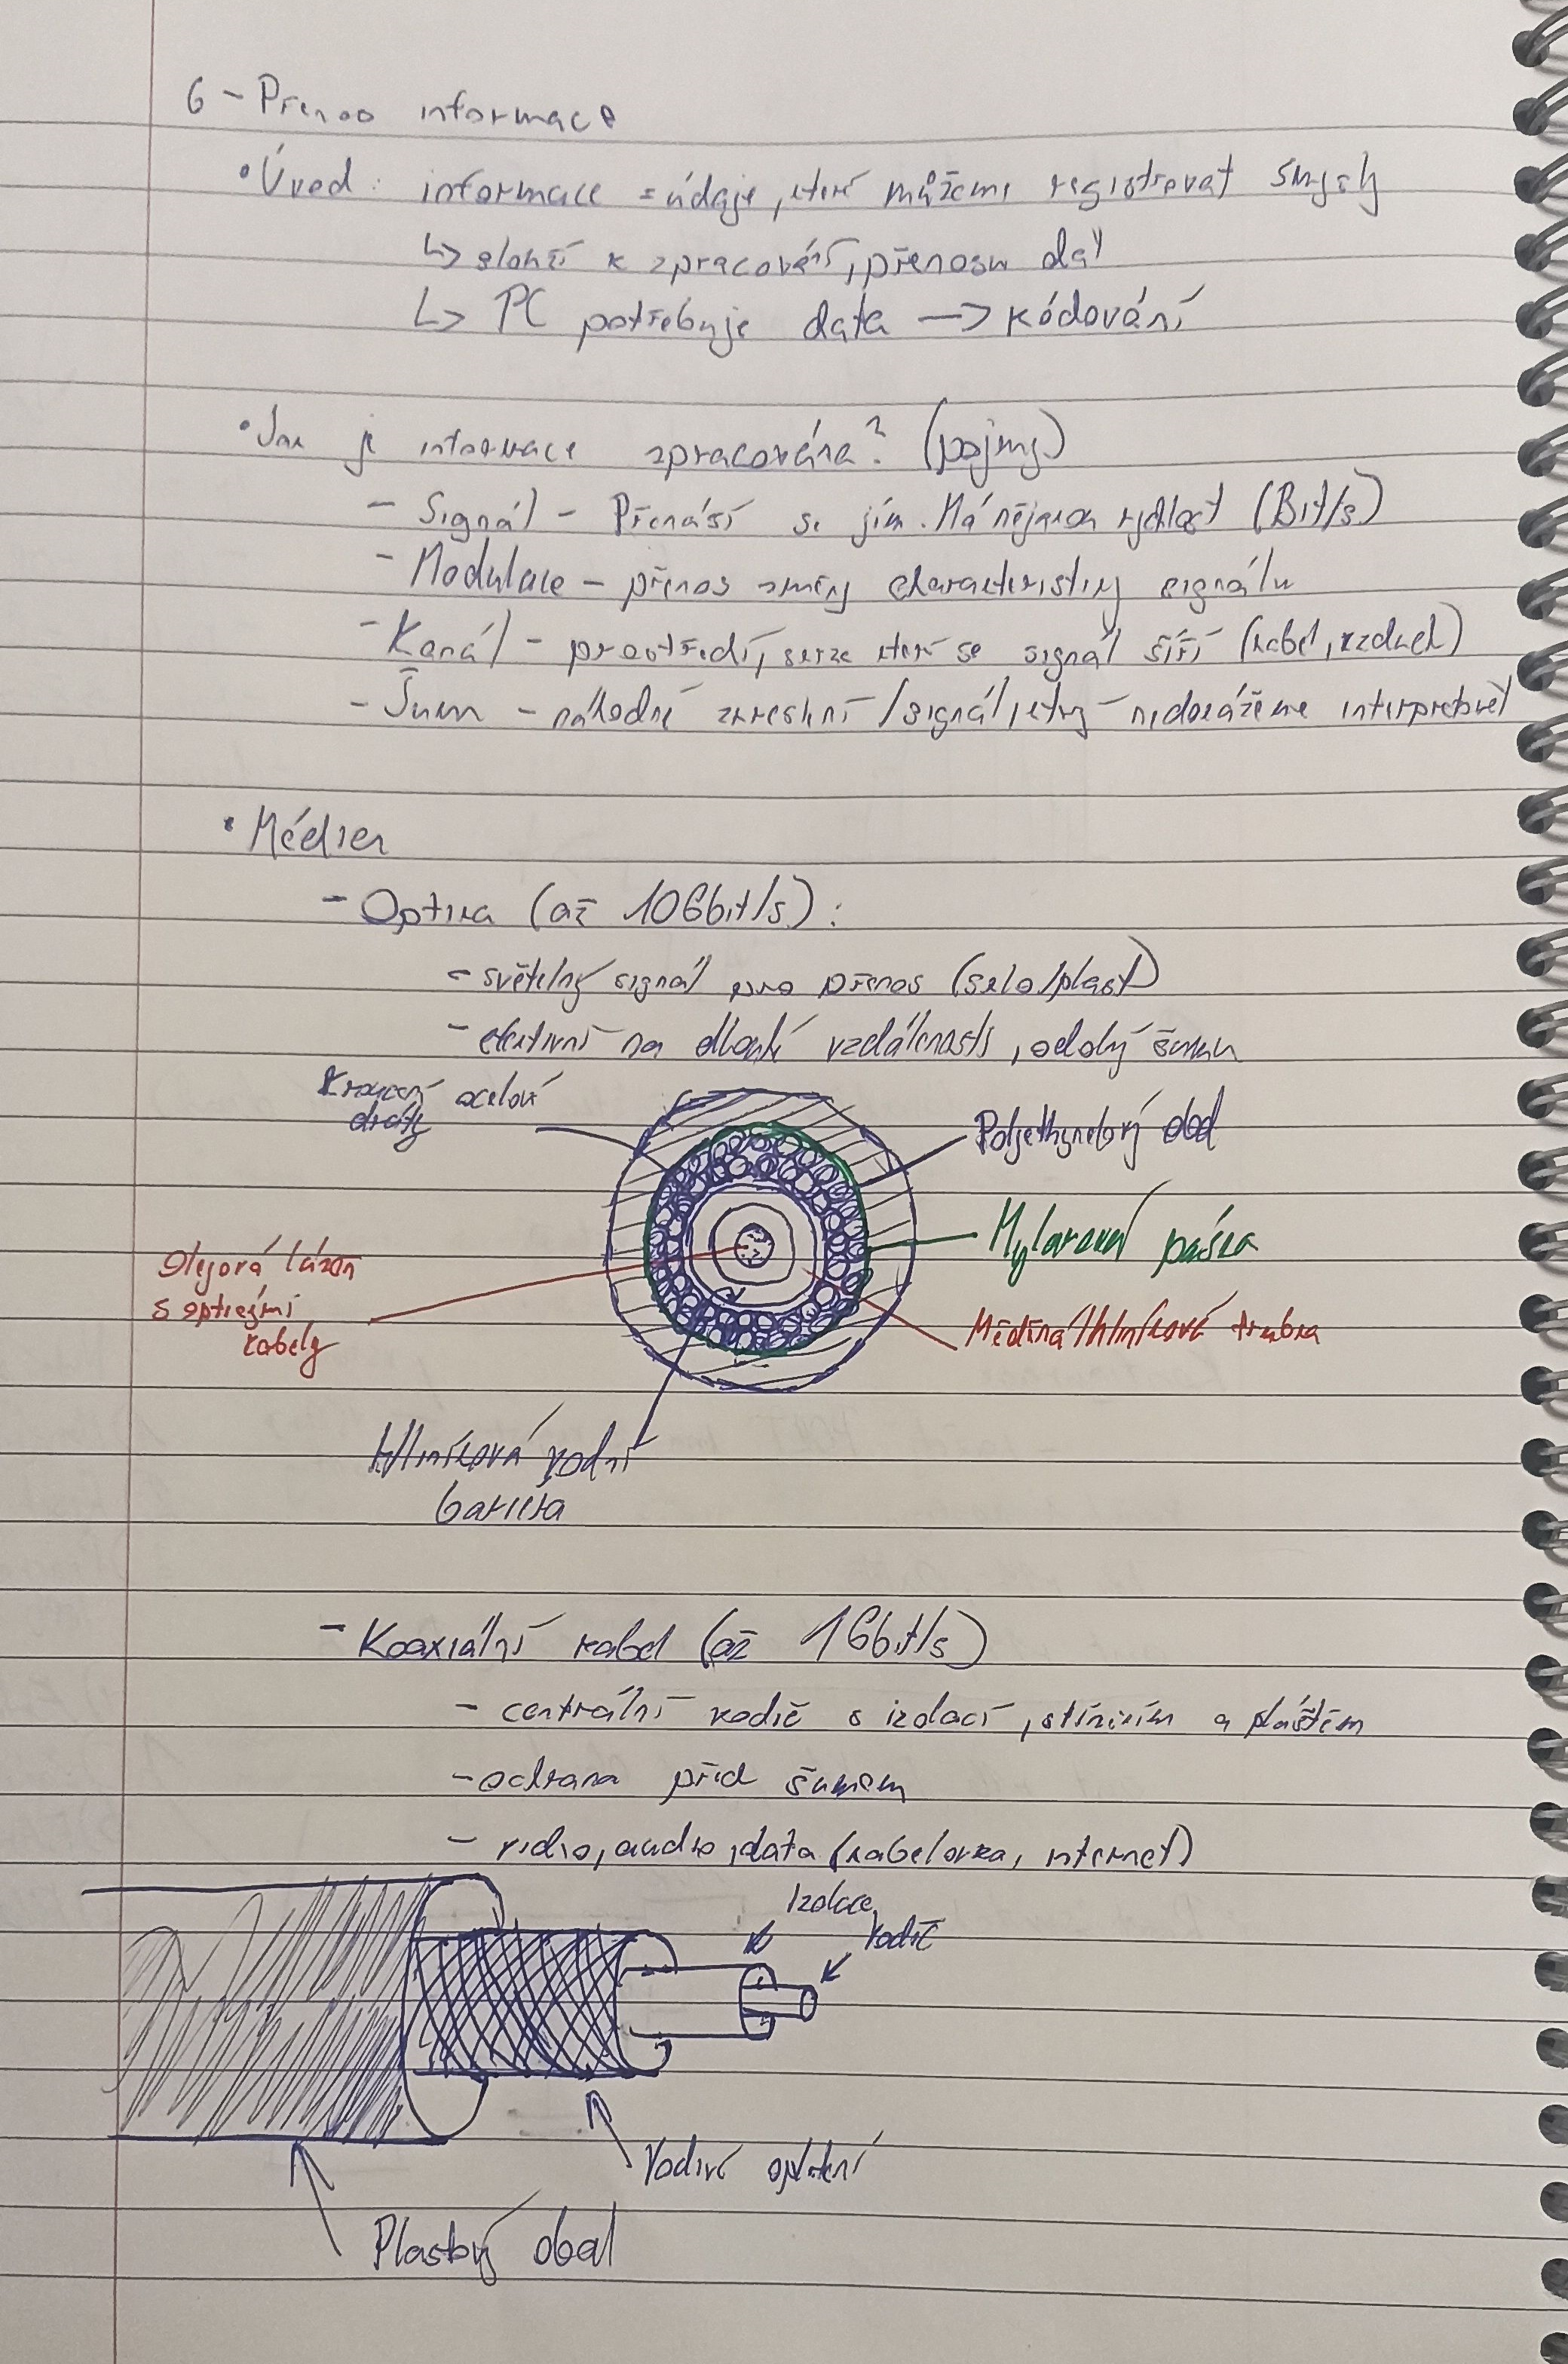 6 - Přenos informace
• Úvod: informace = údaje, které můžeme registrovat smysly
↳ slouží k zpracování, přenosu dat
↳ PC potřebuje data → kódování
• Jak je informace zpracována? (pojmy)
- Signál - Přenáší se jím. Má nějakou rychlost (Bit/s)
- Modulace - přenos změny charakteristiky signálu
- Kanál - prostředí, skrze které se signál šíří (kabel, vzduch)
- Šum - náhodné zkreslení / signál, který nedokážeme interpretovat
• Média
- Optika (až 10Gbit/s):
- světelný signál pro přenos (sklo/plast)
- efektivní na dlouhé vzdálenosti, odolný šumu
Kroucený ocelové
dráty
Polyethynelový obal
Mylarová páska
Olejová lázeň
s optickými
kabely
Měděná/hliníková trubka
Hliníková vodní
bariéra
- Koaxiální kabel (až 1Gbit/s)
- centrální vodič s izolací, stíněním a pláštěm
- ochrana před šumem
- video, audio, data (kabelovka, internet)
Izolace
Vodič
Vodivé opletení
Plastový obal